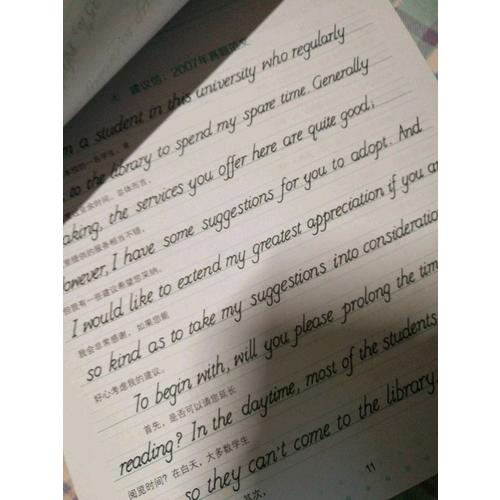 建议信：2007年真题范文
m a student in this university who regularly
本校的一名学生，
to the library to spend my spare time. Generally
业余时间，总体而言，
aking, the services you offer here are quite good;
里提供的服务相当不错，
owever, I have some suggestions for you to adopt. And
但我有一些建议希望您采纳。
I would like to extend my greatest appreciation if you ar
我会非常感谢，如果您能
so kind as to take my suggestions into consideration
好心考虑我的建议。
To begin with, will you please prolong the tim
首先，是否可以请您延长
reading? In the daytime, most of the students
阅览时间？在白天，大多数学生
so they can't come to the library.
其次，
11